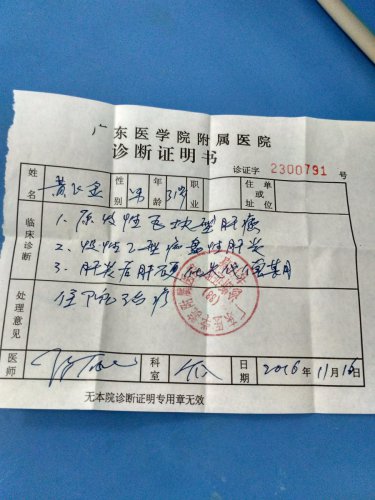 广东医学院附属医院
诊断证明书
诊证字 2300791 号
姓名 性别 男 年龄 31岁 职业 住址 单位 或
临床诊断
1. 原发性巨块型肝癌
2. 慢性乙型病毒性肝炎
3. 肝炎后肝硬化失代偿期
处理意见
住院治疗
医师 科室 日期 2016年11月16日
无本院诊断证明专用章无效